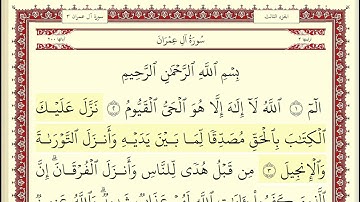 سورة آل عمران ٣
الجزء الثالث
سُورَةُ آلِ عِمْرَانَ
بِسْمِ اللَّهِ الرَّحْمَٰنِ الرَّحِيمِ
الٓمٓ ١ ٱللَّهُ لَآ إِلَٰهَ إِلَّا هُوَ ٱلْحَىُّ ٱلْقَيُّومُ ٢ نَزَّلَ عَلَيْكَ
ٱلْكِتَٰبَ بِٱلْحَقِّ مُصَدِّقًا لِّمَا بَيْنَ يَدَيْهِ وَأَنزَلَ ٱلتَّوْرَىٰةَ
وَٱلْإِنجِيلَ ٣ مِن قَبْلُ هُدًى لِّلنَّاسِ وَأَنزَلَ ٱلْفُرْقَانَ ۗ إِنَّ